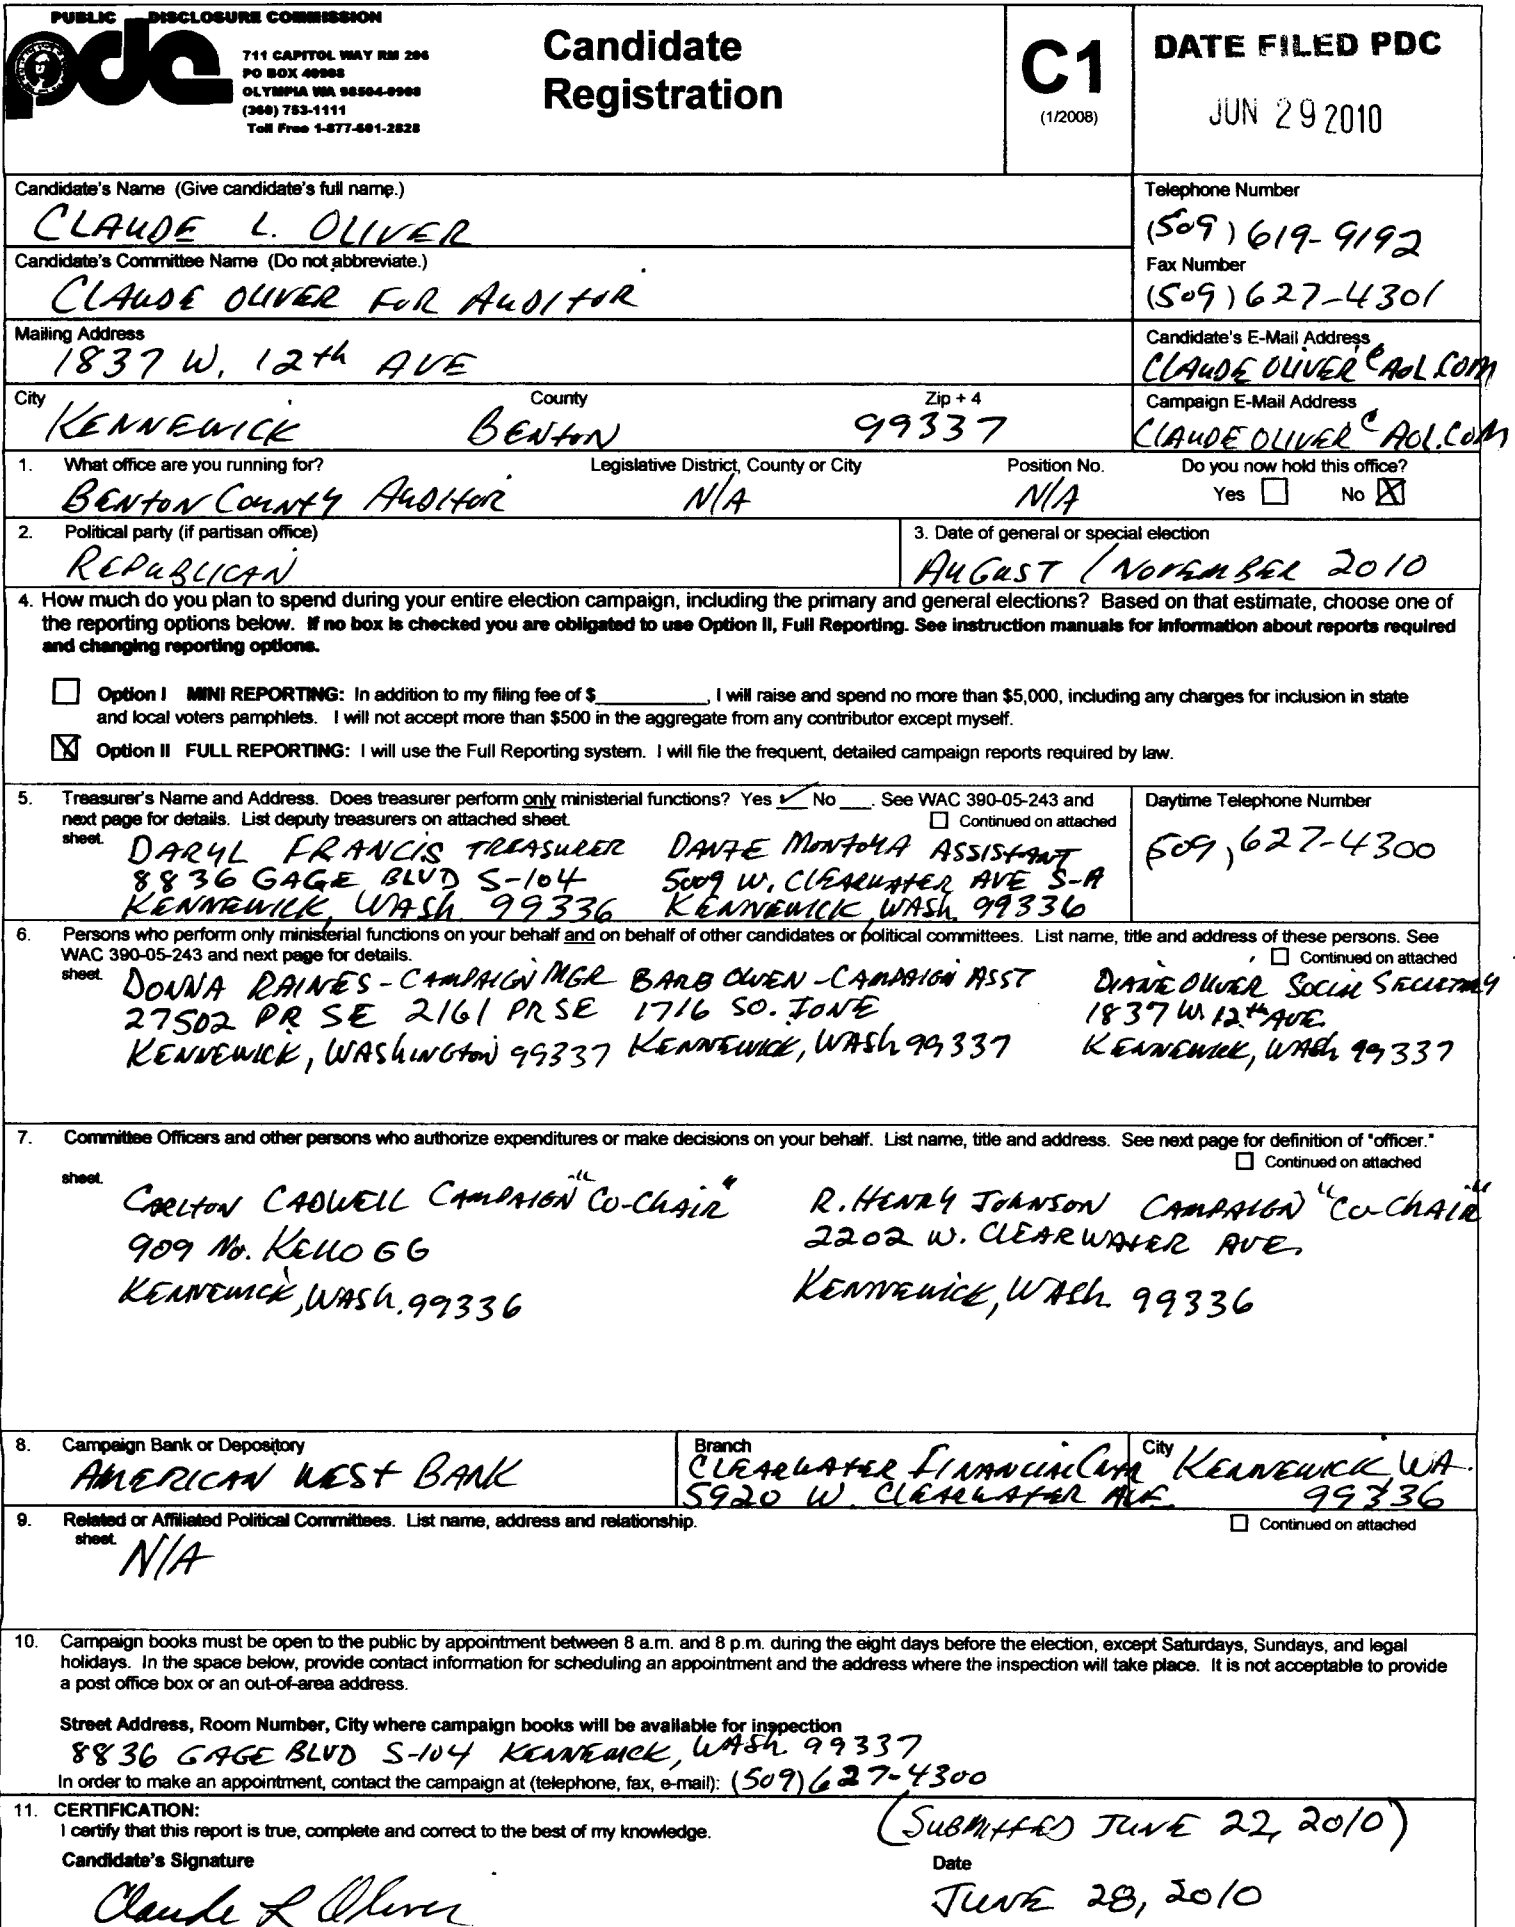 PUBLIC DISCLOSURE COMMISSION
pdc
711 CAPITOL WAY RM 206
PO BOX 40908
OLYMPIA WA 98504-0908
(360) 753-1111
Toll Free 1-877-601-2828
Candidate
Registration
C1
(1/2008)
DATE FILED PDC
JUN 29 2010
Candidate's Name (Give candidate's full name.)
CLAUDE L. OLIVER
Telephone Number
(509) 619-9192
Candidate's Committee Name (Do not abbreviate.)
CLAUDE OLIVER FOR AUDITOR
Fax Number
(509) 627-4301
Mailing Address
1837 W. 12th AVE
Candidate's E-Mail Address
CLAUDE OLIVER@AOL.COM
City County Zip + 4
KENNEWICK BENTON 99337
Campaign E-Mail Address
CLAUDE OLIVER@AOL.COM
1. What office are you running for? Legislative District, County or City Position No. Do you now hold this office?
BENTON COUNTY AUDITOR N/A N/A Yes No X
2. Political party (if partisan office)
REPUBLICAN
3. Date of general or special election
AUGUST / NOVEMBER 2010
4. How much do you plan to spend during your entire election campaign, including the primary and general elections? Based on that estimate, choose one of
the reporting options below. If no box is checked you are obligated to use Option II, Full Reporting. See instruction manuals for information about reports required
and changing reporting options.
Option I MINI REPORTING: In addition to my filing fee of $__________, I will raise and spend no more than $5,000, including any charges for inclusion in state
and local voters pamphlets. I will not accept more than $500 in the aggregate from any contributor except myself.
X Option II FULL REPORTING: I will use the Full Reporting system. I will file the frequent, detailed campaign reports required by law.
5. Treasurer's Name and Address. Does treasurer perform only ministerial functions? Yes ✓ No ___. See WAC 390-05-243 and
next page for details. List deputy treasurers on attached sheet. Continued on attached
sheet.
DARYL FRANCIS TREASURER DANTE MONTOYA ASSISTANT
8836 GAGE BLVD S-104 5009 W. CLEARWATER AVE S-A
KENNEWICK, WASH. 99336 KENNEWICK, WASH. 99336
Daytime Telephone Number
(509) 627-4300
6. Persons who perform only ministerial functions on your behalf and on behalf of other candidates or political committees. List name, title and address of these persons. See
WAC 390-05-243 and next page for details. Continued on attached
sheet.
DONNA RAINES - CAMPAIGN MGR BARB OWEN - CAMPAIGN ASST DIANE OLIVER SOCIAL SECRETARY
27502 PR SE 2161 PR SE 1716 SO. IONE 1837 W. 12th AVE.
KENNEWICK, WASHINGTON 99337 KENNEWICK, WASH 99337 KENNEWICK, WASH 99337
7. Committee Officers and other persons who authorize expenditures or make decisions on your behalf. List name, title and address. See next page for definition of "officer."
Continued on attached
sheet.
CARLTON CADWELL CAMPAIGN "CO-CHAIR" R. HENRY JOHNSON CAMPAIGN "CO-CHAIR"
909 No. KELLOGG 2202 W. CLEARWATER AVE.
KENNEWICK, WASH. 99336 KENNEWICK, WASH. 99336
8. Campaign Bank or Depository Branch City
AMERICAN WEST BANK CLEARWATER FINANCIAL CNTR KENNEWICK, WA.
5920 W. CLEARWATER AVE. 99336
9. Related or Affiliated Political Committees. List name, address and relationship. Continued on attached
sheet.
N/A
10. Campaign books must be open to the public by appointment between 8 a.m. and 8 p.m. during the eight days before the election, except Saturdays, Sundays, and legal
holidays. In the space below, provide contact information for scheduling an appointment and the address where the inspection will take place. It is not acceptable to provide
a post office box or an out-of-area address.
Street Address, Room Number, City where campaign books will be available for inspection
8836 GAGE BLVD S-104 KENNEWICK, WASH 99337
In order to make an appointment, contact the campaign at (telephone, fax, e-mail): (509) 627-4300
11. CERTIFICATION:
I certify that this report is true, complete and correct to the best of my knowledge.
(SUBMITTED JUNE 22, 2010)
Candidate's Signature Date
Claude L Oliver JUNE 28, 2010